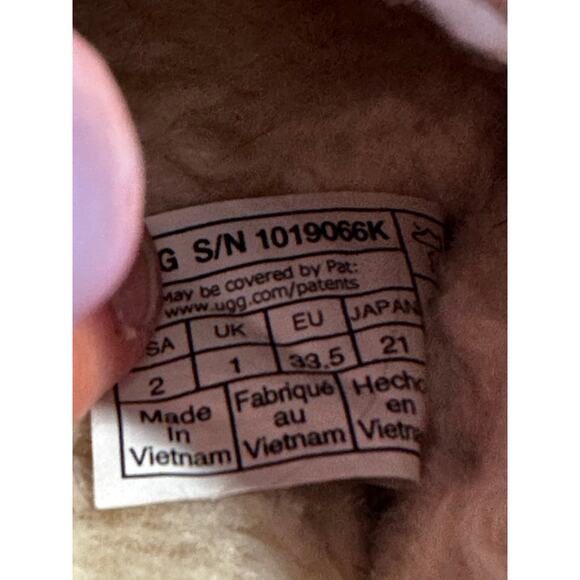 G S/N 1019066K
May be covered by Pat:
www.ugg.com/patents
SA UK EU JAPAN
2 1 33.5 21
Made in Vietnam
Fabriqué au Vietnam
Hecho en Vietna